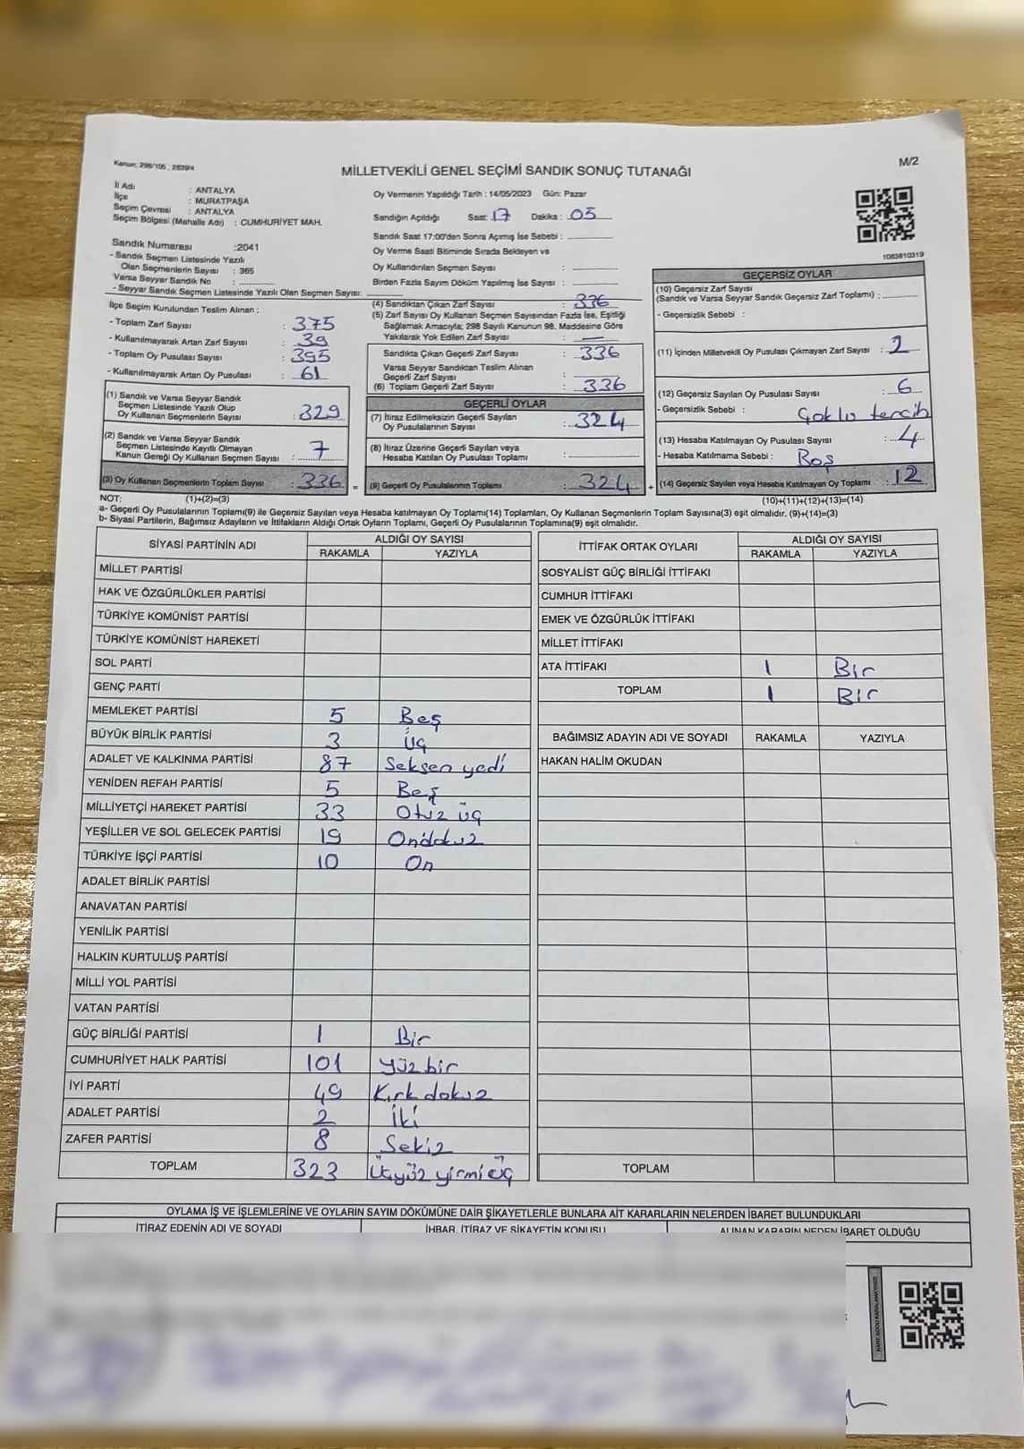 Kanun: 298/105, 2839/4
M/2
MİLLETVEKİLİ GENEL SEÇİMİ SANDIK SONUÇ TUTANAĞI
İl Adı : ANTALYA
İlçe : MURATPAŞA
Seçim Çevresi : ANTALYA
Seçim Bölgesi (Mahalle Adı) : CUMHURİYET MAH.
Sandık Numarası :2041
- Sandık Seçmen Listesinde Yazılı
Olan Seçmenlerin Sayısı : 365
Varsa Seyyar Sandık No :
- Seyyar Sandık Seçmen Listesinde Yazılı Olan Seçmen Sayısı:
Oy Vermenin Yapıldığı Tarih : 14/05/2023 Gün: Pazar
Sandığın Açıldığı Saat: 17 Dakika : 05
Sandık Saat 17:00'den Sonra Açımış İse Sebebi :
Oy Verme Saati Bitiminde Sırada Bekleyen ve
Oy Kullandırılan Seçmen Sayısı :
Birden Fazla Sayım Döküm Yapılmış İse Sayısı :
1063810319
İlçe Seçim Kurulundan Teslim Alınan ;
- Toplam Zarf Sayısı : 375
- Kullanılmayarak Artan Zarf Sayısı : 39
- Toplam Oy Pusulası Sayısı : 395
- Kullanılmayarak Artan Oy Pusulası : 61
(1) Sandık ve Varsa Seyyar Sandık
Seçmen Listesinde Yazılı Olup
Oy Kullanan Seçmenlerin Sayısı : 329
(2) Sandık ve Varsa Seyyar Sandık
Seçmen Listesinde Kayıtlı Olmayan
Kanun Gereği Oy Kullanan Seçmen Sayısı : 7
(3) Oy Kullanan Seçmenlerin Toplam Sayısı : 336 =
(4) Sandıktan Çıkan Zarf Sayısı : 336
(5) Zarf Sayısı Oy Kullanan Seçmen Sayısından Fazla İse, Eşitliği
Sağlamak Amacıyla; 298 Sayılı Kanunun 98. Maddesine Göre
Yakılarak Yok Edilen Zarf Sayısı : —
Sandıkta Çıkan Geçerli Zarf Sayısı : 336
Varsa Seyyar Sandıktan Teslim Alınan
Geçerli Zarf Sayısı :
(6) Toplam Geçerli Zarf Sayısı : 336
GEÇERLİ OYLAR
(7) İtiraz Edilmeksizin Geçerli Sayılan
Oy Pusulalarının Sayısı : 324
(8) İtiraz Üzerine Geçerli Sayılan veya
Hesaba Katılan Oy Pusulası Toplamı :
(9) Geçerli Oy Pusulalarının Toplamı : 324 +
GEÇERSİZ OYLAR
(10) Geçersiz Zarf Sayısı
(Sandık ve Varsa Seyyar Sandık Geçersiz Zarf Toplamı) :
- Geçersizlik Sebebi :
(11) İçinden Milletvekili Oy Pusulası Çıkmayan Zarf Sayısı : 2
(12) Geçersiz Sayılan Oy Pusulası Sayısı : 6
- Geçersizlik Sebebi : Çoklu tercih
(13) Hesaba Katılmayan Oy Pusulası Sayısı : 4
- Hesaba Katılmama Sebebi : Boş
(14) Geçersiz Sayılan veya Hesaba Katılmayan Oy Toplamı : 12
NOT: (1)+(2)=(3)
(10)+(11)+(12)+(13)=(14)
a- Geçerli Oy Pusulalarının Toplamı(9) ile Geçersiz Sayılan veya Hesaba katılmayan Oy Toplamı(14) Toplamları, Oy Kullanan Seçmenlerin Toplam Sayısına(3) eşit olmalıdır. (9)+(14)=(3)
b- Siyasi Partilerin, Bağımsız Adayların ve İttifakların Aldığı Ortak Oyların Toplamı, Geçerli Oy Pusulalarının Toplamına(9) eşit olmalıdır.
SİYASİ PARTİNİN ADI ALDIĞI OY SAYISI
RAKAMLA YAZIYLA
MİLLET PARTİSİ
HAK VE ÖZGÜRLÜKLER PARTİSİ
TÜRKİYE KOMÜNİST PARTİSİ
TÜRKİYE KOMÜNİST HAREKETİ
SOL PARTİ
GENÇ PARTİ
MEMLEKET PARTİSİ 5 Beş
BÜYÜK BİRLİK PARTİSİ 3 Üç
ADALET VE KALKINMA PARTİSİ 87 Seksen yedi
YENİDEN REFAH PARTİSİ 5 Beş
MİLLİYETÇİ HAREKET PARTİSİ 33 Otuz üç
YEŞİLLER VE SOL GELECEK PARTİSİ 19 Ondokuz
TÜRKİYE İŞÇİ PARTİSİ 10 On
ADALET BİRLİK PARTİSİ
ANAVATAN PARTİSİ
YENİLİK PARTİSİ
HALKIN KURTULUŞ PARTİSİ
MİLLİ YOL PARTİSİ
VATAN PARTİSİ
GÜÇ BİRLİĞİ PARTİSİ 1 Bir
CUMHURİYET HALK PARTİSİ 101 Yüz bir
İYİ PARTİ 49 Kırk dokuz
ADALET PARTİSİ 2 İki
ZAFER PARTİSİ 8 Sekiz
TOPLAM 323 Üçyüz yirmi üç
İTTİFAK ORTAK OYLARI ALDIĞI OY SAYISI
RAKAMLA YAZIYLA
SOSYALİST GÜÇ BİRLİĞİ İTTİFAKI
CUMHUR İTTİFAKI
EMEK VE ÖZGÜRLÜK İTTİFAKI
MİLLET İTTİFAKI
ATA İTTİFAKI 1 Bir
TOPLAM 1 Bir
BAĞIMSIZ ADAYIN ADI VE SOYADI RAKAMLA YAZIYLA
HAKAN HALİM OKUDAN
TOPLAM
OYLAMA İŞ VE İŞLEMLERİNE VE OYLARIN SAYIM DÖKÜMÜNE DAİR ŞİKAYETLERLE BUNLARA AİT KARARLARIN NELERDEN İBARET BULUNDUKLARI
İTİRAZ EDENİN ADI VE SOYADI İHBAR, İTİRAZ VE ŞİKAYETİN KONUSU ALINAN KARARIN NEDEN İBARET OLDUĞU